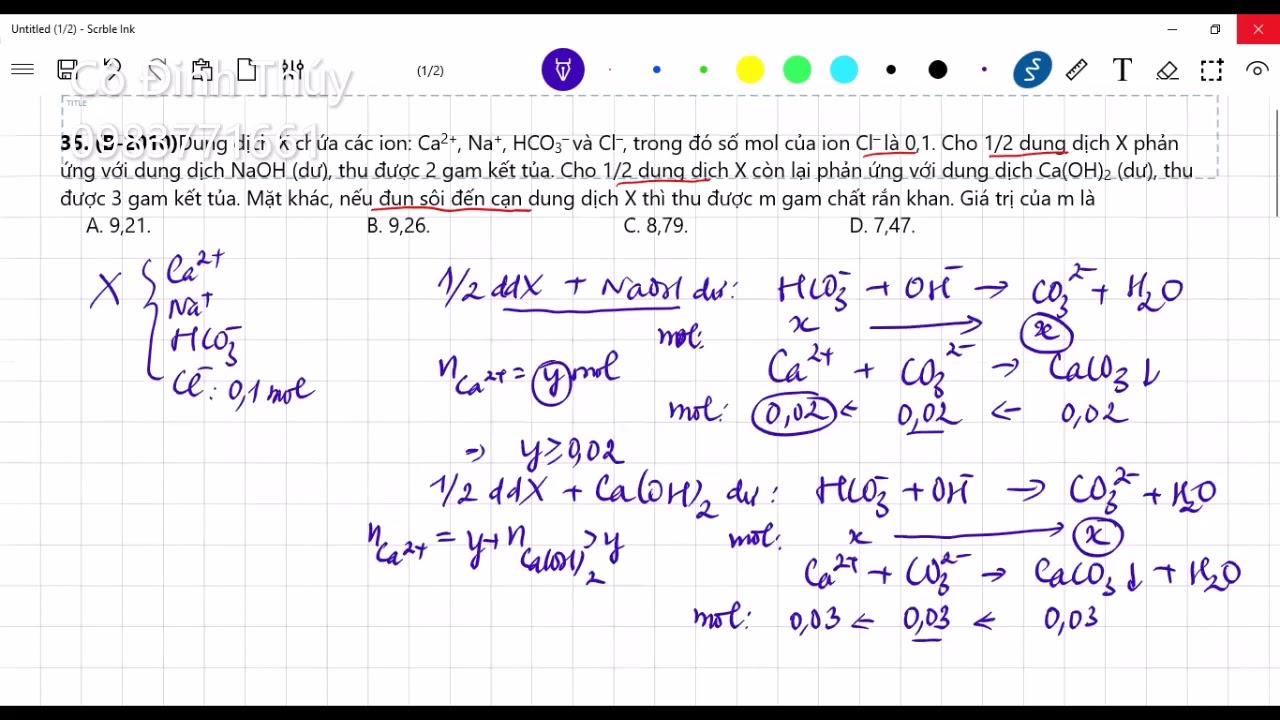 Untitled (1/2) - Scrble Ink
Cô Đinh Thúy
(1/2)
T
TITLE
0983771661
35. (B-2010) Dung dịch X chứa các ion: Ca²⁺, Na⁺, HCO₃⁻ và Cl⁻, trong đó số mol của ion Cl⁻ là 0,1. Cho 1/2 dung dịch X phản
ứng với dung dịch NaOH (dư), thu được 2 gam kết tủa. Cho 1/2 dung dịch X còn lại phản ứng với dung dịch Ca(OH)₂ (dư), thu
được 3 gam kết tủa. Mặt khác, nếu đun sôi đến cạn dung dịch X thì thu được m gam chất rắn khan. Giá trị của m là
A. 9,21. B. 9,26. C. 8,79. D. 7,47.
X { Ca²⁺
Na⁺
HCO₃⁻
Cl⁻: 0,1 mol
1/2 ddX + NaOH dư: HCO₃⁻ + OH⁻ → CO₃²⁻ + H₂O
mol: x → x
n Ca²⁺ = y mol Ca²⁺ + CO₃²⁻ → CaCO₃ ↓
mol: 0,02 ← 0,02 ← 0,02
⇒ y ≥ 0,02
1/2 ddX + Ca(OH)₂ dư: HCO₃⁻ + OH⁻ → CO₃²⁻ + H₂O
n Ca²⁺ = y + n Ca(OH)₂ > y mol: x → x
Ca²⁺ + CO₃²⁻ → CaCO₃ ↓ + H₂O
mol: 0,03 ← 0,03 ← 0,03